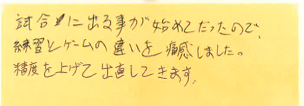 試合に出る事が始めてだったので、
練習とゲームの違いを痛感しました。
精度を上げて出直してきます。